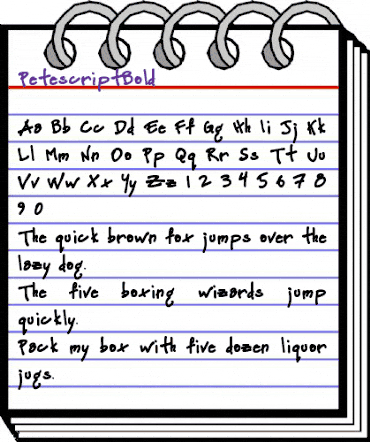 PetescriptBold
Aa Bb Cc Dd Ee Ff Gg Hh Ii Jj Kk
Ll Mm Nn Oo Pp Qq Rr Ss Tt Uu
Vv Ww Xx Yy Zz 1 2 3 4 5 6 7 8
9 0
The quick brown fox jumps over the
lazy dog.
The five boxing wizards jump
quickly.
Pack my box with five dozen liquor
jugs.